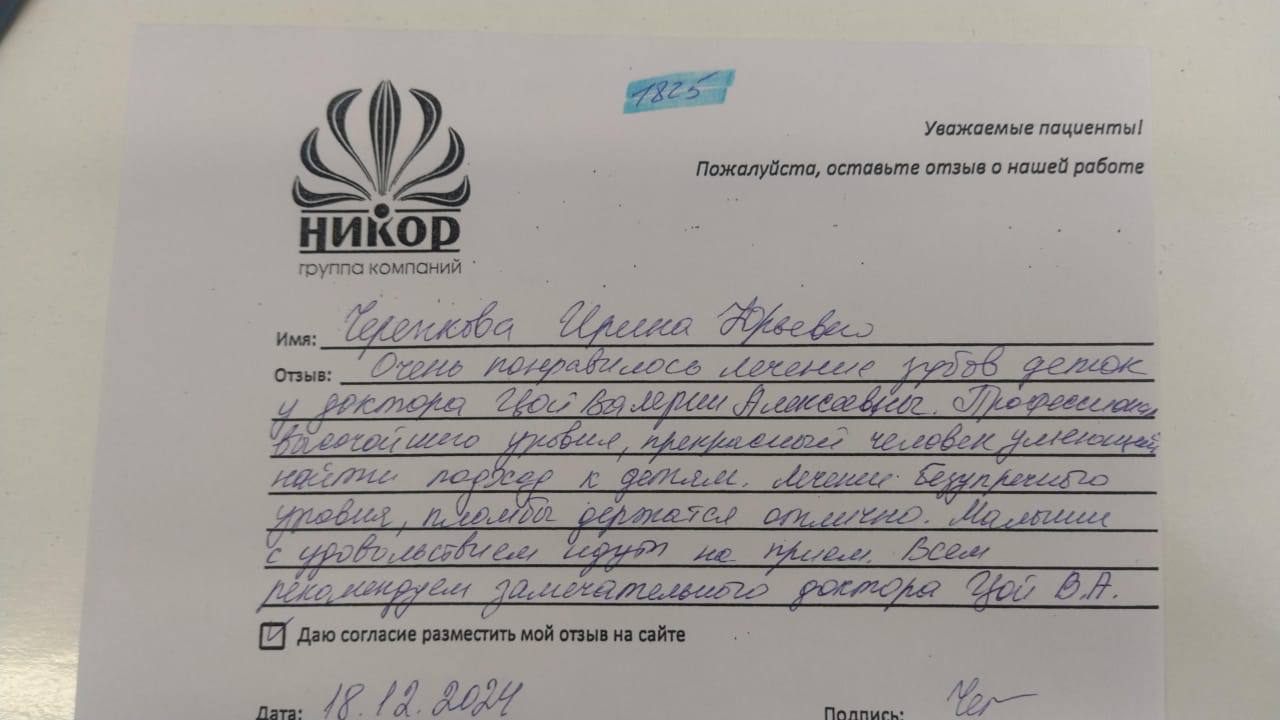 1825
Уважаемые пациенты!
Пожалуйста, оставьте отзыв о нашей работе
НИКОР
группа компаний
Имя: Черепкова Ирина Юрьевна
Отзыв: Очень понравилось лечение зубов деток
у доктора Цой Валерии Алексеевны. Профессионал
высочайшего уровня, прекрасный человек умеющий
найти подход к детям. Лечение безупречного
уровня, пломбы держатся отлично. Малыши
с удовольствием идут на прием. Всем
рекомендуем замечательного доктора Цой В.А.
Даю согласие разместить мой отзыв на сайте
Дата: 18.12.2024 Подпись: Чер